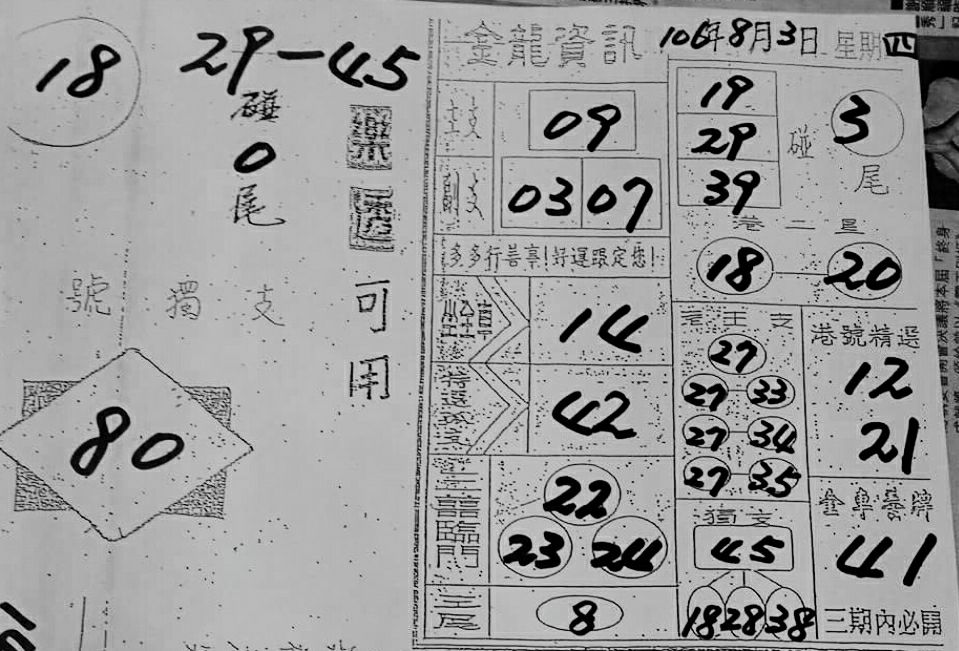 18
29－45
碰
0
尾
樂透
可
用
號 獨 支
80
金龍資訊 106年8月3日 星期四
主支 09
副支 03 07
多多行善亭!好運跟定您!
14
42
22
23 24
臨門
尾 8
19
29
39
碰 3 尾
港二星
18 — 20
支
27
27 — 33
27 — 34
27 — 35
港號精選
12
21
獨支
45
18 28 38
金 牌
41
三期內必開